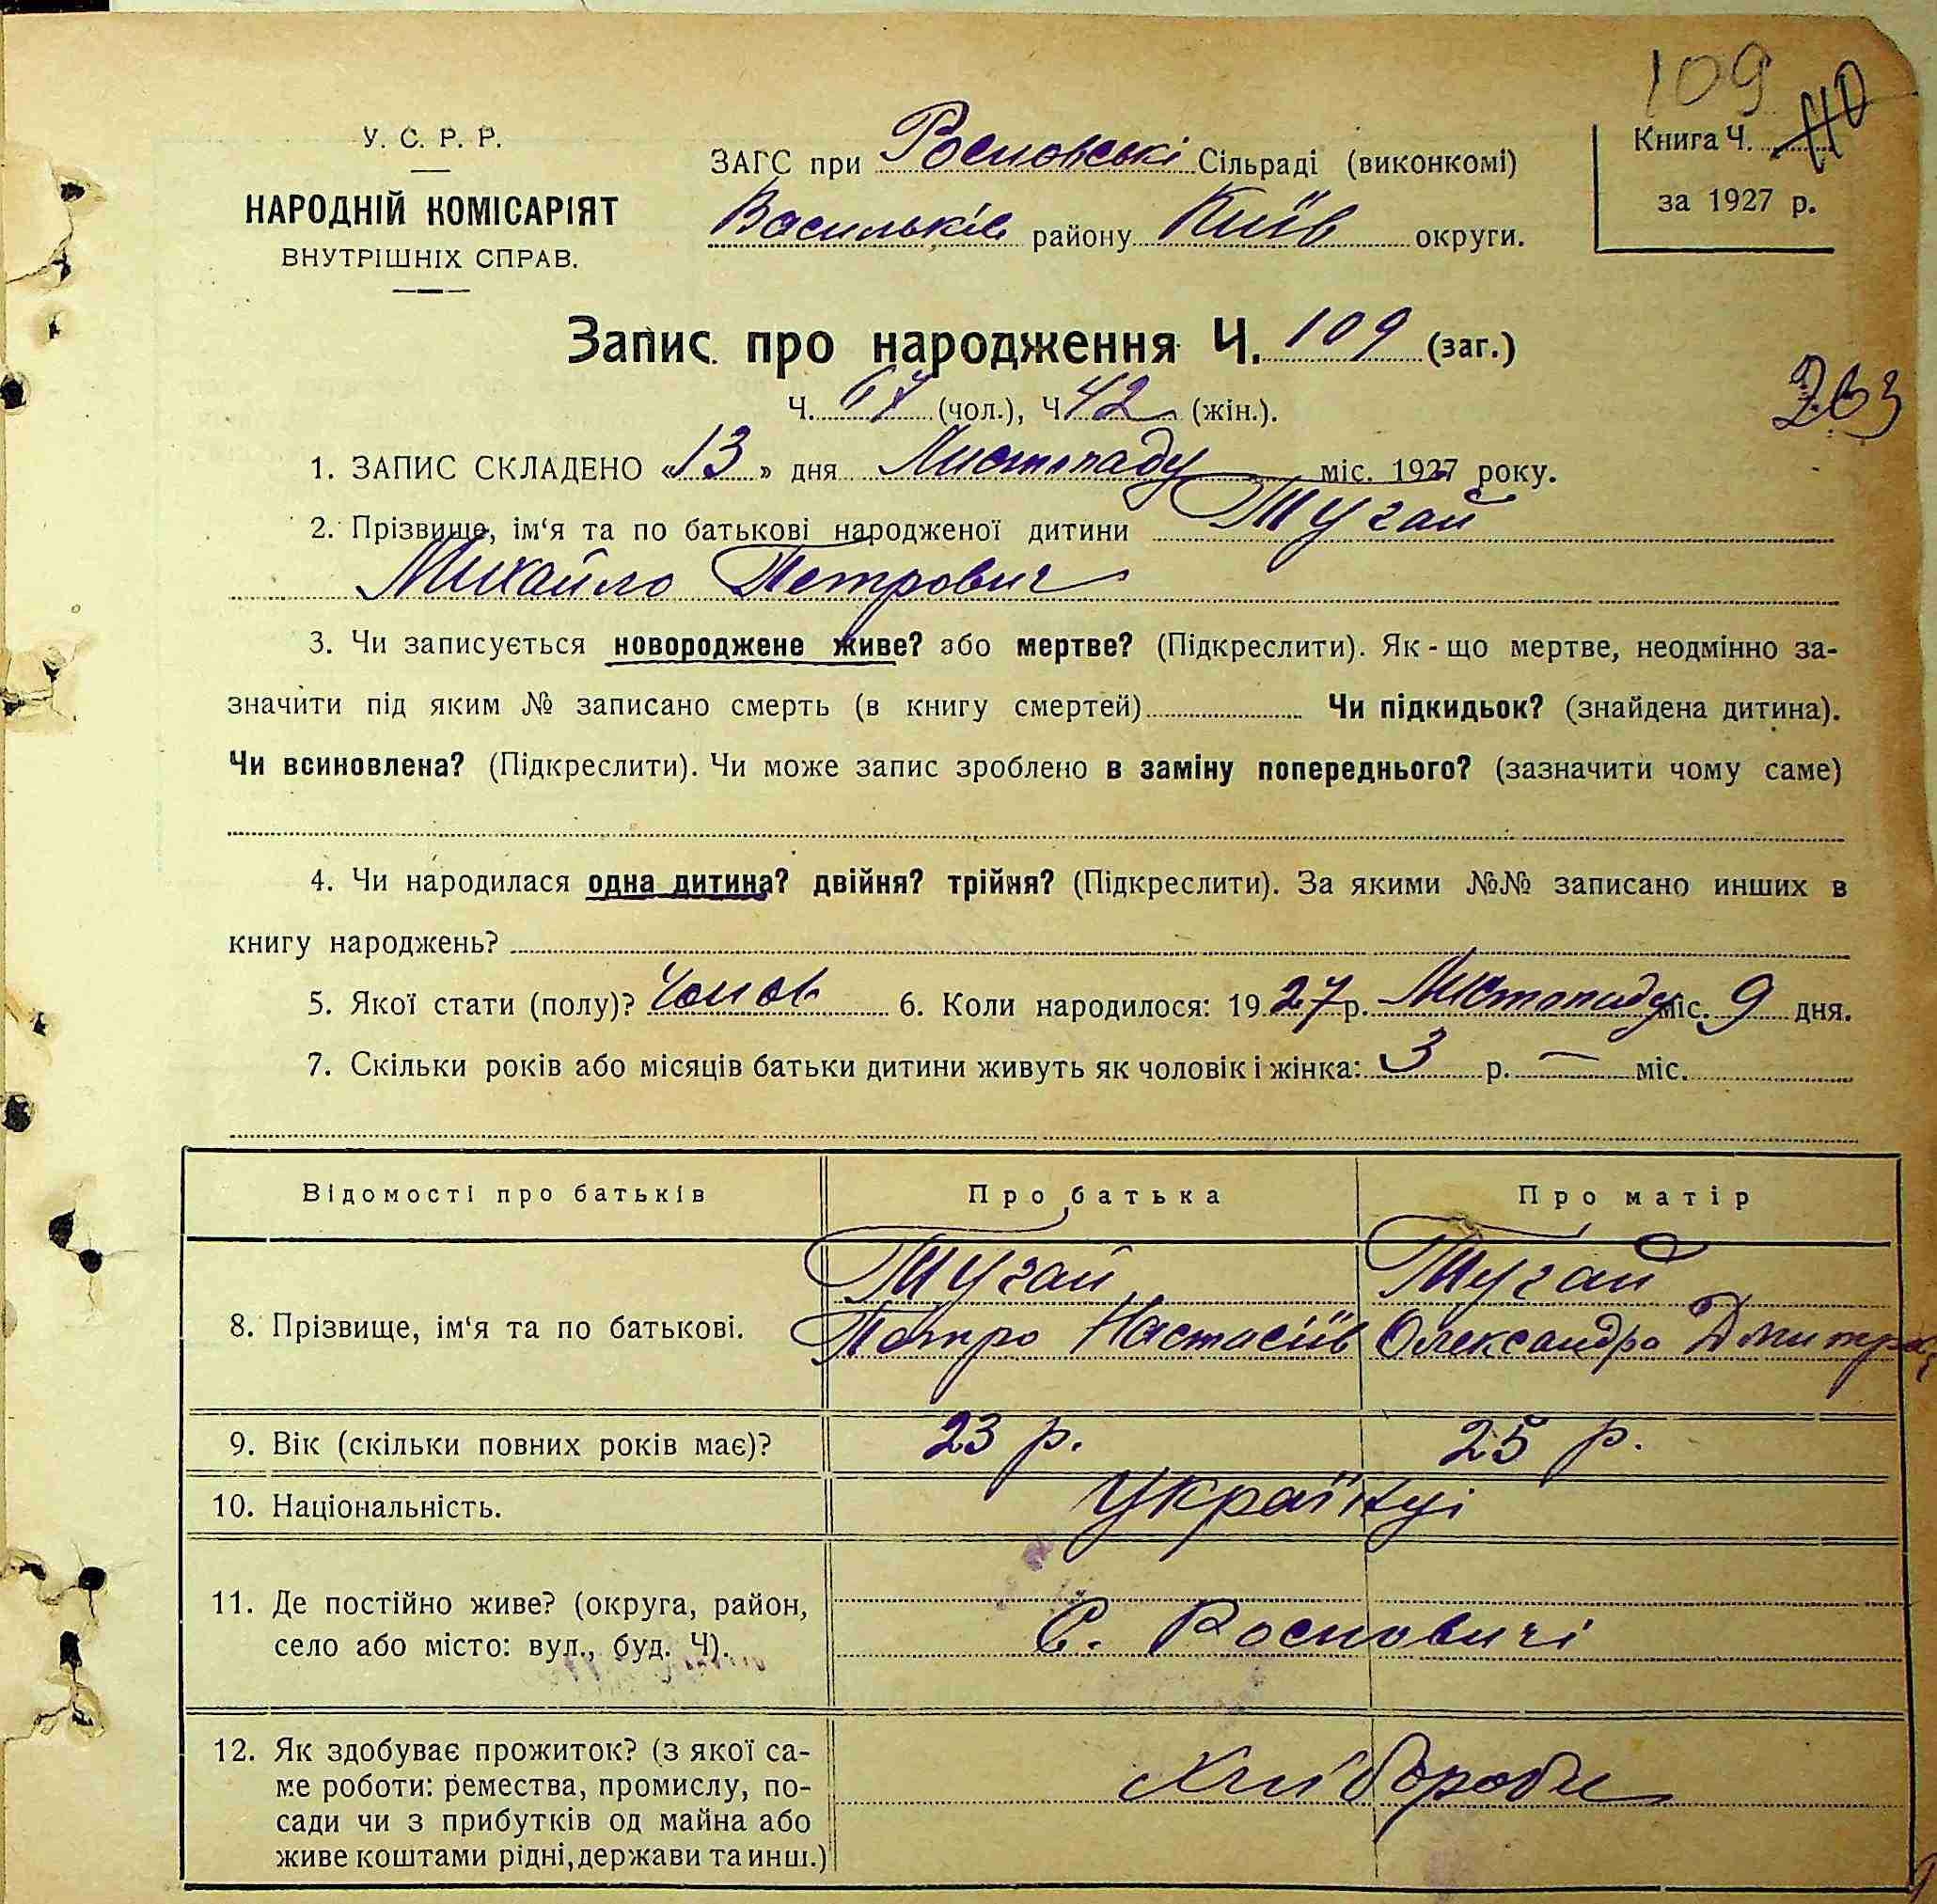 109
У. С. Р. Р.
НАРОДНІЙ КОМІСАРІЯТ
ВНУТРІШНІХ СПРАВ.
ЗАГС при Росновські Сільраді (виконкомі)
Васильків району Київ округи.
Книга Ч. 110
за 1927 р.
Запис про народження Ч. 109 (заг.)
Ч. 67 (чол.), Ч 42 (жін.).
263
1. ЗАПИС СКЛАДЕНО «13» дня Листопаду міс. 1927 року.
2. Прізвище, ім‘я та по батькові народженої дитини Тугай
Михайло Петрович
3. Чи записується новороджене живе? або мертве? (Підкреслити). Як-що мертве, неодмінно за-
значити під яким № записано смерть (в книгу смертей) Чи підкидьок? (знайдена дитина).
Чи всиновлена? (Підкреслити). Чи може запис зроблено в заміну попереднього? (зазначити чому саме)
4. Чи народилася одна дитина? двійня? трійня? (Підкреслити). За якими №№ записано инших в
книгу народжень?
5. Якої стати (полу)? Чолов 6. Коли народилося: 1927 р. Листопаду міс. 9 дня.
7. Скільки років або місяців батьки дитини живуть як чоловік і жінка: 3 р. — міс.
Відомості про батьків Про батька Про матір
8. Прізвище, ім‘я та по батькові. Тугай Тугай
Петро Настасіїв Олександра Дмитр
9. Вік (скільки повних років має)? 23 р. 25 р.
10. Національність. Українці
11. Де постійно живе? (округа, район,
село або місто: вул., буд. Ч). С. Росновичі
12. Як здобуває прожиток? (з якої са-
ме роботи: ремества, промислу, по-
сади чи з прибутків од майна або
живе коштами рідні, держави та инш.) Хлібороби